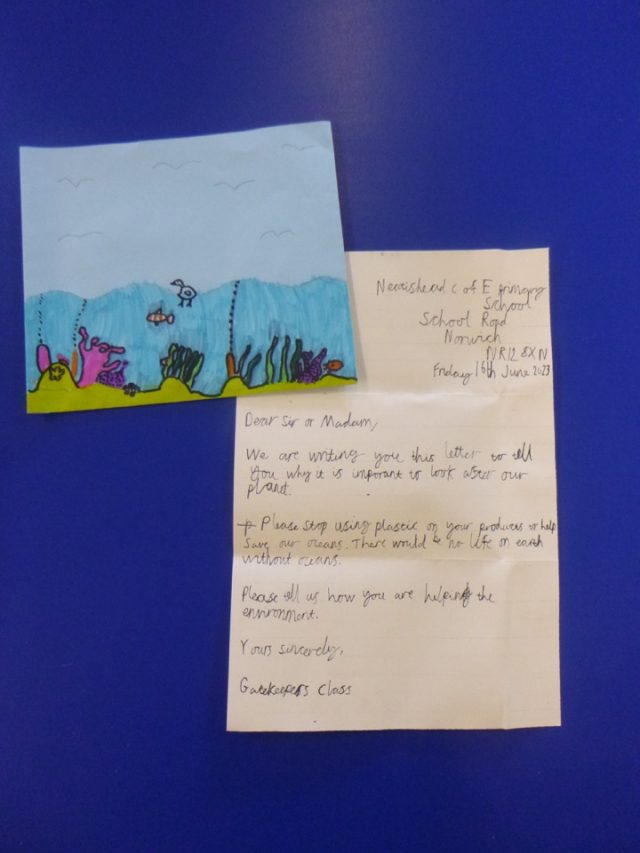 Neatishead C of E primary
School
School Road
Norwich
NR12 8XN
Friday 16th June 2023
Dear Sir or Madam,
We are writing you this letter to tell
you why it is imporant to look after our
planet.
Please stop using plastic on your produces to help
Save our oceans. There would be no life on earth
without oceans.
Please tell us how you are helping the
environment.
Yours sincerely,
Gatekeepers Class